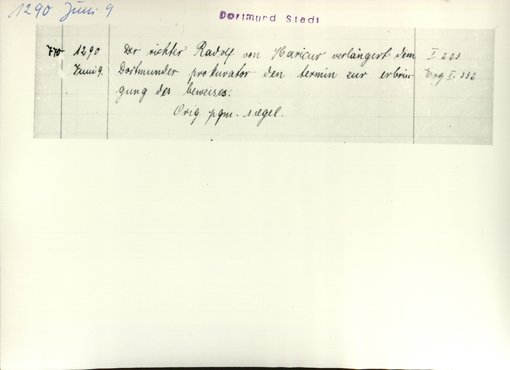 1290 Juni 9
Dortmund Stadt
770 1290 Der richter Radolf von Haricur verlängert dem I 223
Juni 9. Dortmunder prokurator den termin zur erbrin- Erg I. 332
gung des beweises.
Orig. pgm. siegel.